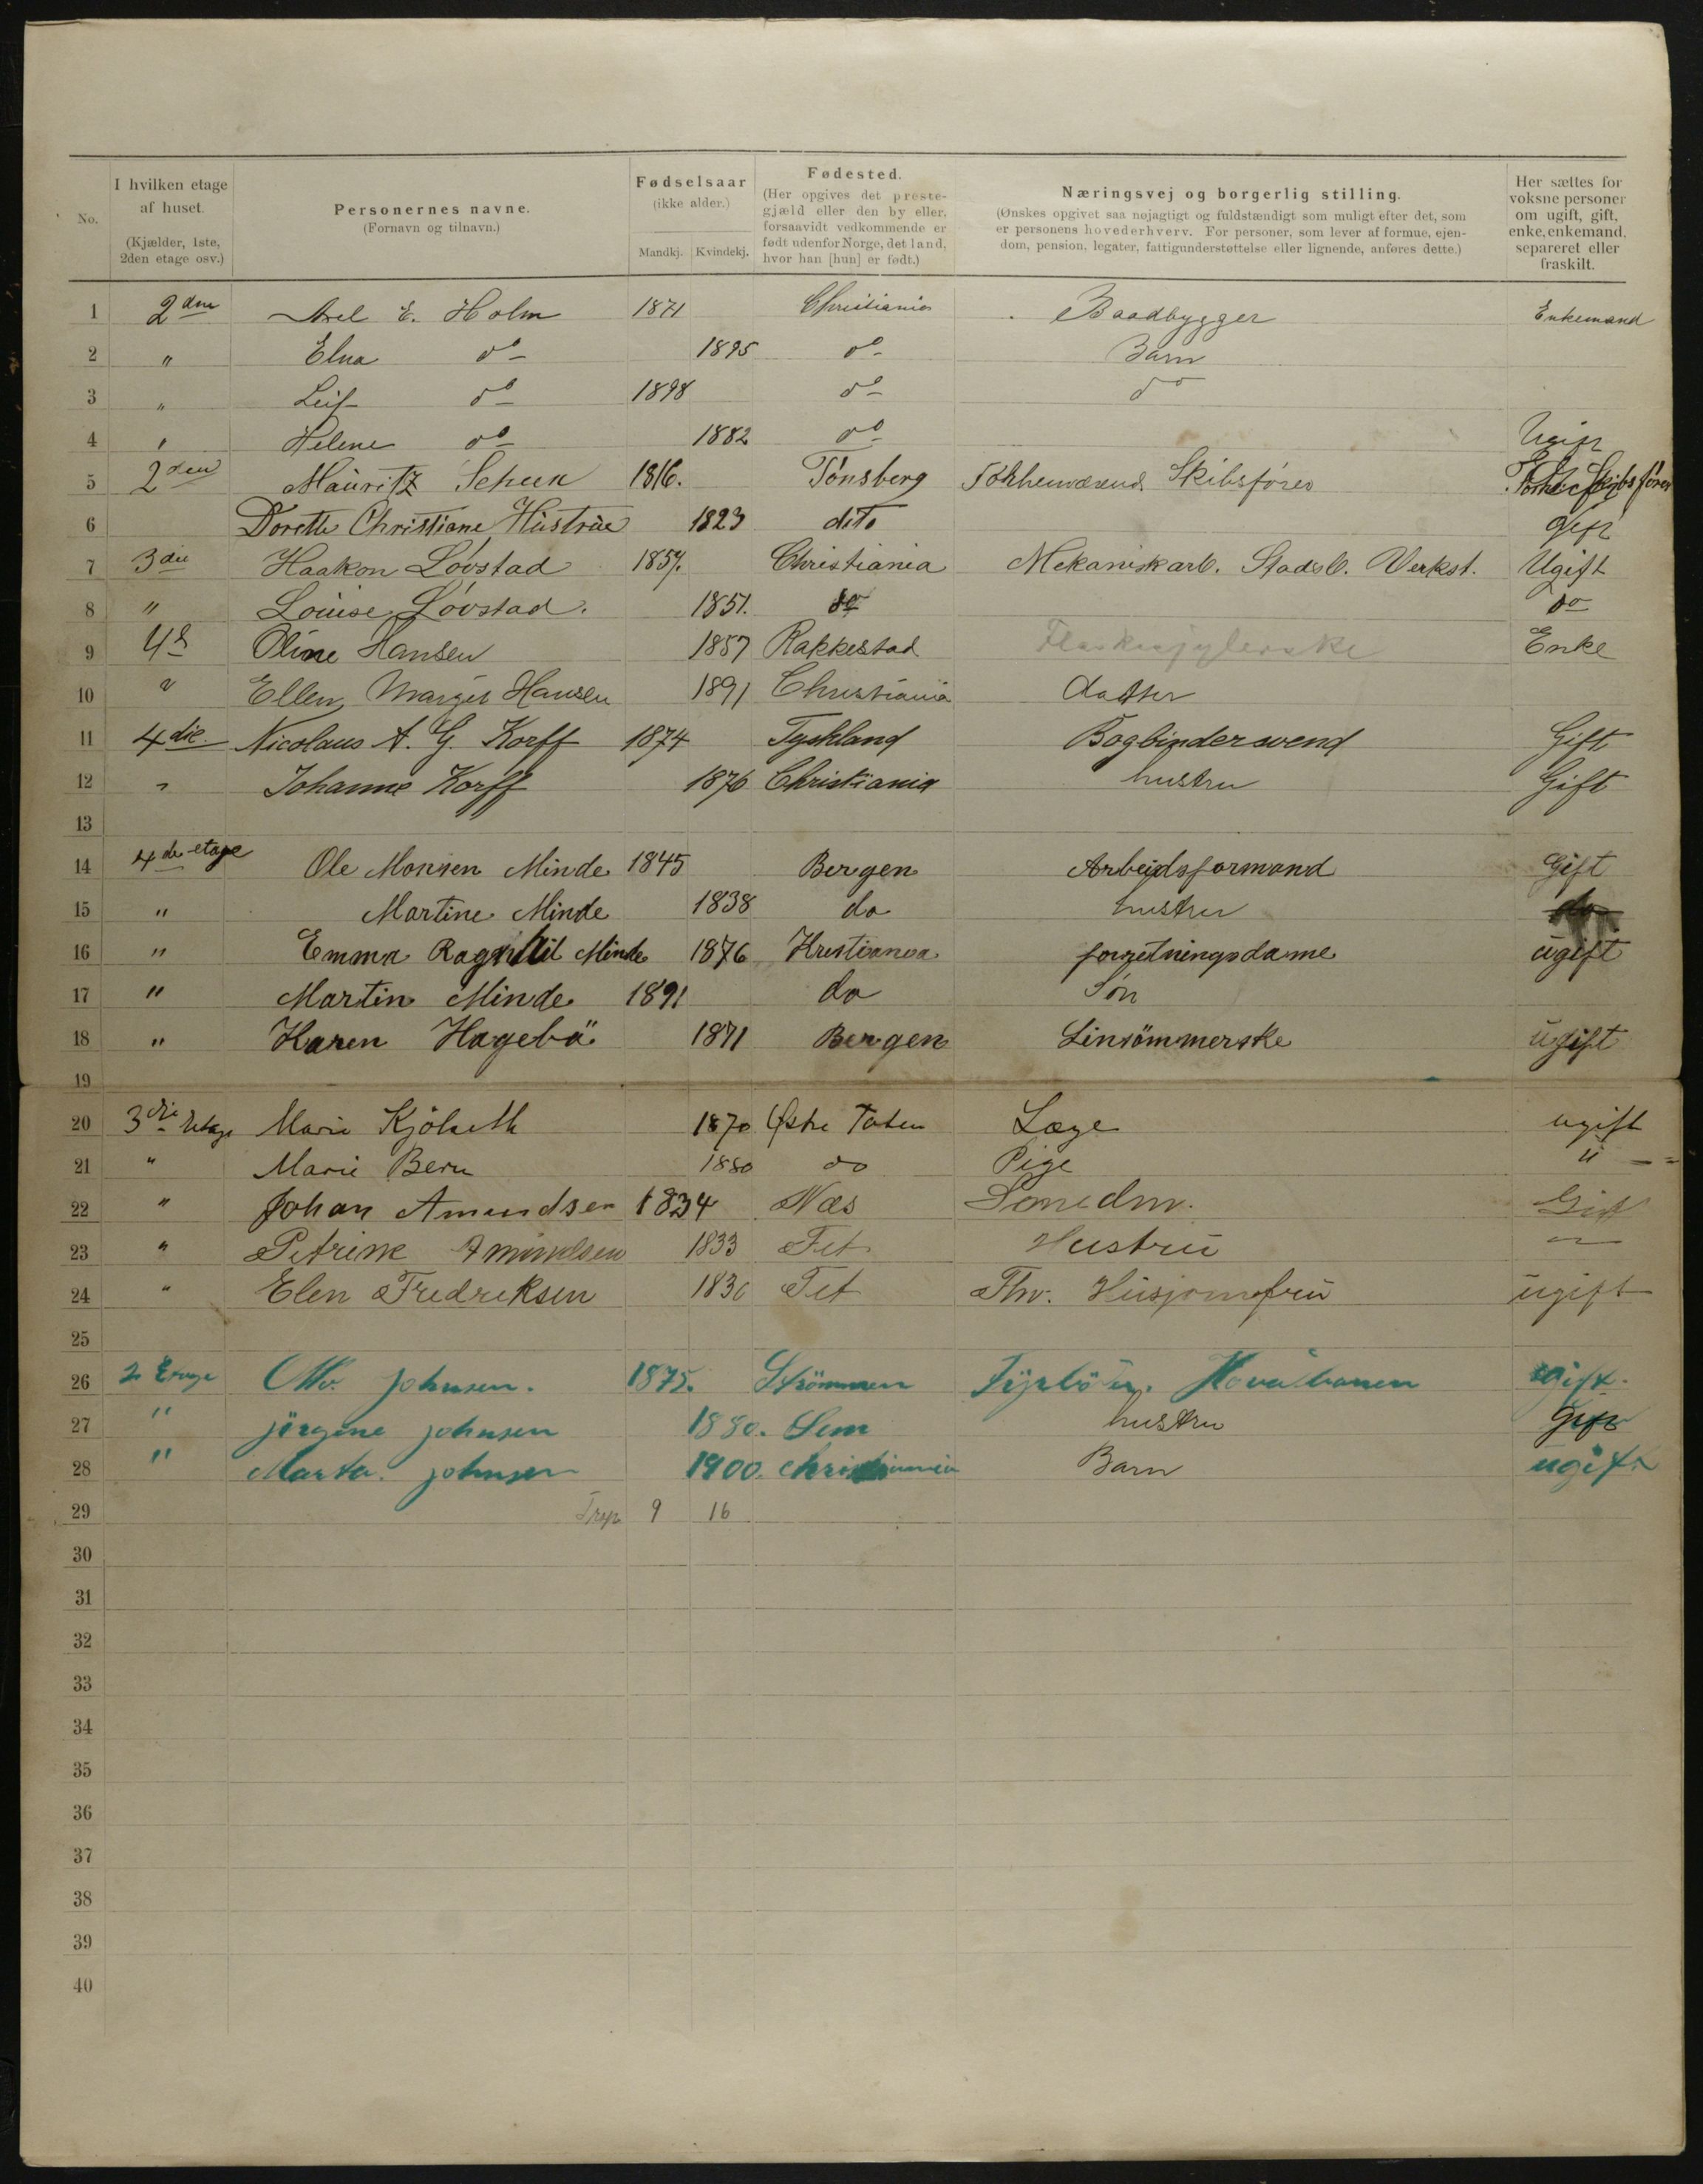 No.
I hvilken etage af huset. (Kjælder, 1ste, 2den etage osv.)
Personernes navne. (Fornavn og tilnavn.)
Fødselsaar (ikke alder.) Mandkj. Kvindekj.
Fødested. (Her opgives det prestegjæld eller den by eller, forsaavidt vedkommende er født udenfor Norge, det land, hvor han [hun] er født.)
Næringsvej og borgerlig stilling. (Ønskes opgivet saa nøjagtigt og fuldstændigt som muligt efter det, som er personens hovederhverv. For personer, som lever af formue, ejendom, pension, legater, fattigunderstøttelse eller lignende, anføres dette.)
Her sættes for voksne personer om ugift, gift, enke, enkemand, separeret eller fraskilt.
1 2den Axel E. Holm 1871 Christiania Baadbygger Enkemand
2 " Elna do 1895 do Barn
3 " Leif do 1898 do do
4 " Helene do 1882 do Ugift
5 2den Mauritz Scheen 1816. Tønsberg Skibsfører
6 Dorette Christiane Hustrue 1823 dito Gift
7 3die Haakon Løvstad 1857. Christiania Mekaniskarb. Stadsb. Verkst. Ugift
8 " Louise Løvstad. 1851. do do
9 Oline Hansen 1857 Rakkestad Enke
10 " Ellen Margit Hansen 1891 Christiania datter
11 4die. Nicolaus A. G. Korff 1874 Tyskland Bogbindersvend Gift
12 " Johanne Korff 1876 Christiania hustru Gift
13
14 4de etage Ole Monsen Minde 1845 Bergen Arbeidsformand Gift
15 " Martine Minde 1838 do hustru do
16 " Emma Ragnhil Minde 1876 Kristiania forretningsdame ugift
17 " Martin Minde 1891 do Søn
18 " Karen Hagebö 1871 Bergen Linsömmerske ugift
19
20 3die Etage Marie Kjölseth 1870 Østre Toten Læge ugift
21 " Marie Bern 1880 do Pige u
22 " Johan Amundsen 1834 Næs Gift
23 " Petrine Amundsen 1833 Fet Hustru "
24 " Elen Fredreksen 1830 Fet ugift
25
26 2 Etage Otto Johnsen. 1875. Strömmen Fyrböter. Hovedbanen gift.
27 " Jörgine Johnsen 1880. Sem hustru Gift
28 " Marta Johnsen 1900. Christiania Barn ugift
29 9 16
30
31
32
33
34
35
36
37
38
39
40